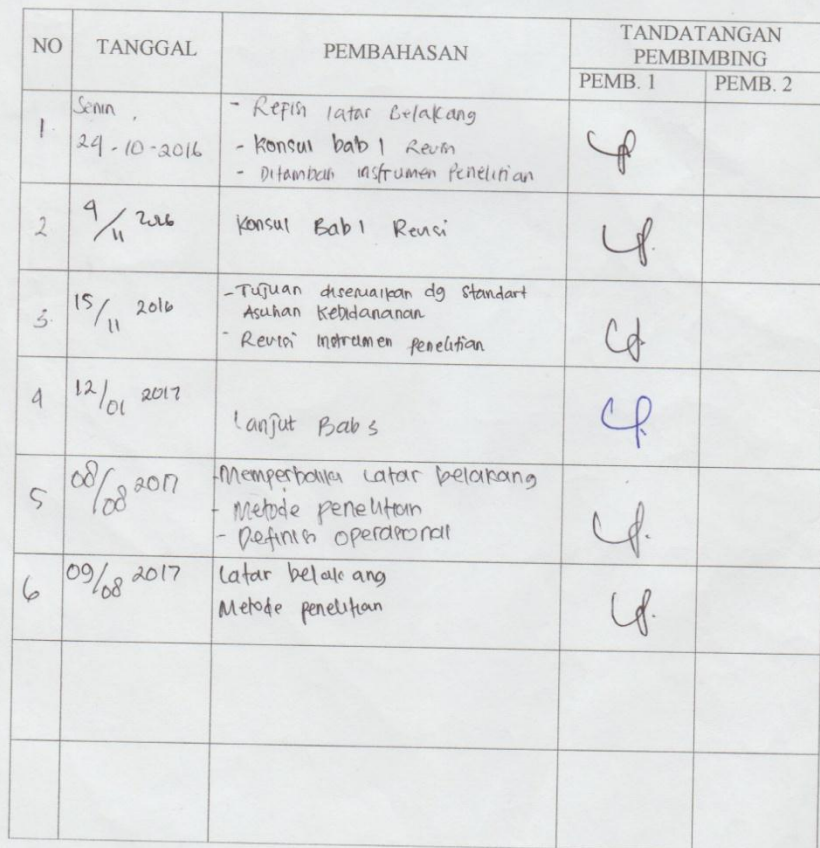 NO TANGGAL PEMBAHASAN TANDATANGAN PEMBIMBING
PEMB. 1 PEMB. 2
1. Senin, 24-10-2016
- Refisi latar Belakang
- Konsul bab 1 Revisi
- Ditambah instrumen Penelitian
2 4/11 2016 Konsul Bab 1 Revisi
3. 15/11 2016
- Tujuan disesuaikan dg Standart
Asuhan Kebidananan
- Revisi instrumen penelitian
4 12/01 2017 Lanjut Bab 3
5 08/08 2017
- Memperbaiki Latar belakang
- Metode penelitian
- Definisi operasional
6 09/08 2017 Latar belakang
Metode penelitian